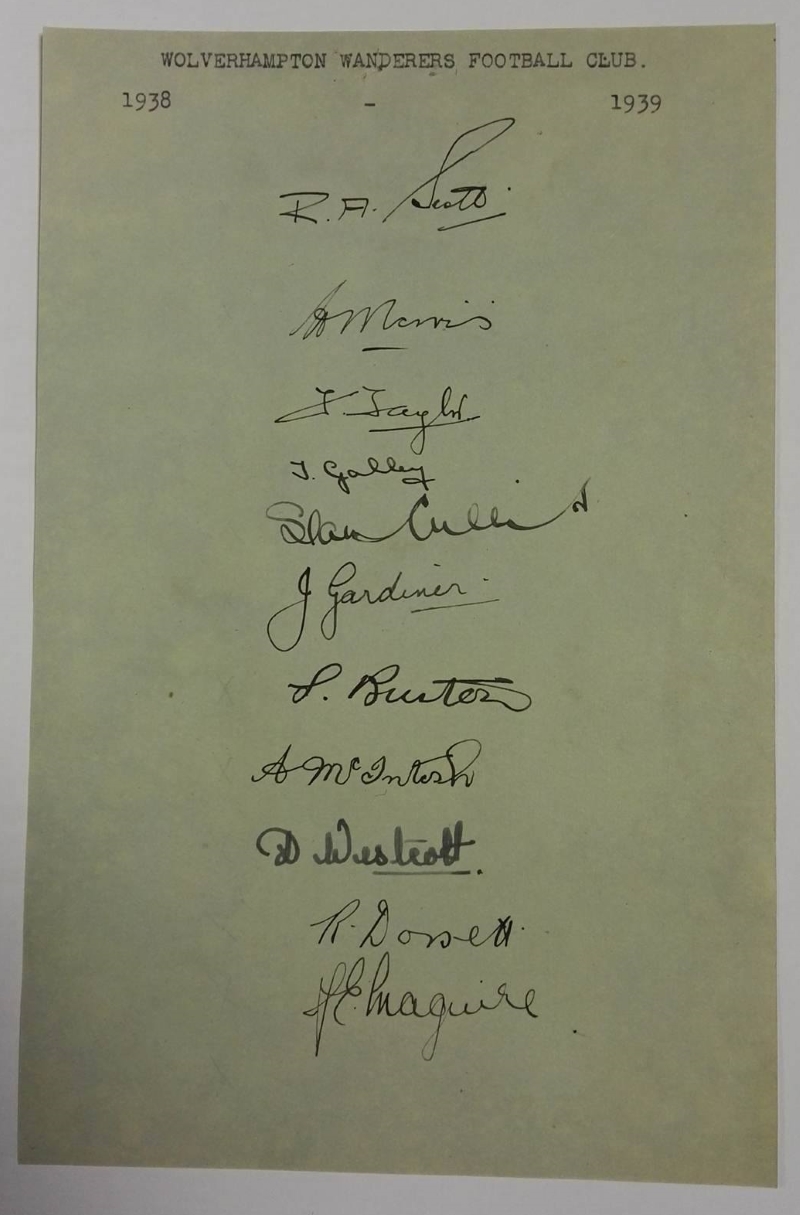 WOLVERHAMPTON WANDERERS FOOTBALL CLUB.
1938 - 1939
R. A. Scott.
W Morris
F. Taylor
T. Galley
Stan Cullis
J Gardiner.
S. Burton
A McIntosh
D Westcott.
R. Dorsett.
J E. Maguire